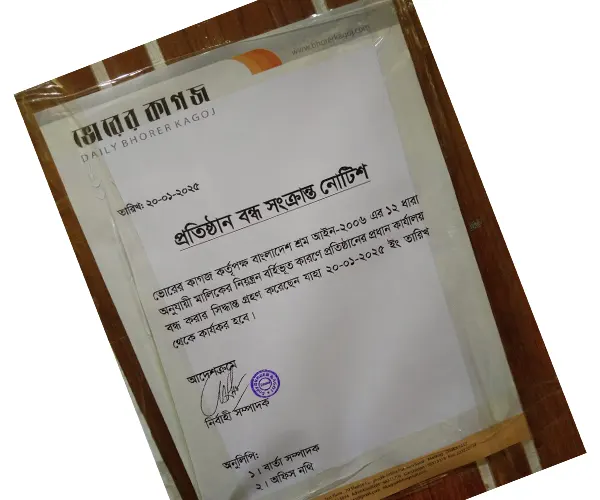 www.bhorerkagoj.com
ভোরের কাগজ
DAILY BHORER KAGOJ
তারিখ: ২০-০১-২০২৫
প্রতিষ্ঠান বন্ধ সংক্রান্ত নোটিশ
ভোরের কাগজ কর্তৃপক্ষ বাংলাদেশ শ্রম আইন-২০০৬ এর ১২ ধারা
অনুযায়ী মালিকের নিয়ন্ত্রন বর্হিভূত কারণে প্রতিষ্ঠানের প্রধান কার্যালয়
বন্ধ করার সিদ্ধান্ত গ্রহণ করেছেন যাহা ২০-০১-২০২৫ ইং তারিখ
থেকে কার্যকর হবে।
আদেশক্রমে
নির্বাহী সম্পাদক
অনুলিপি:
১। বার্তা সম্পাদক
২। অফিস নথি